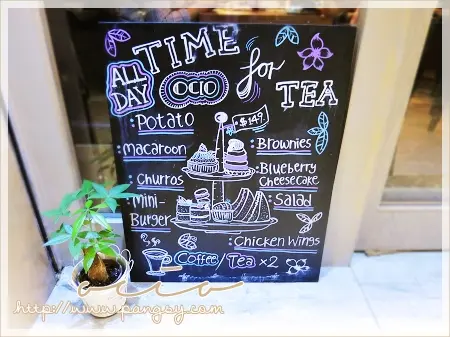 TIME
ALL DAY
OCIO
for
TEA
$149
:Potato
:macaroon
:Churros
:Mini-Burger
:Brownies
:Blueberry Cheesecake
:Salad
:Chicken Wings
Coffee/Tea x2
ocio
http://www.pangsy.com